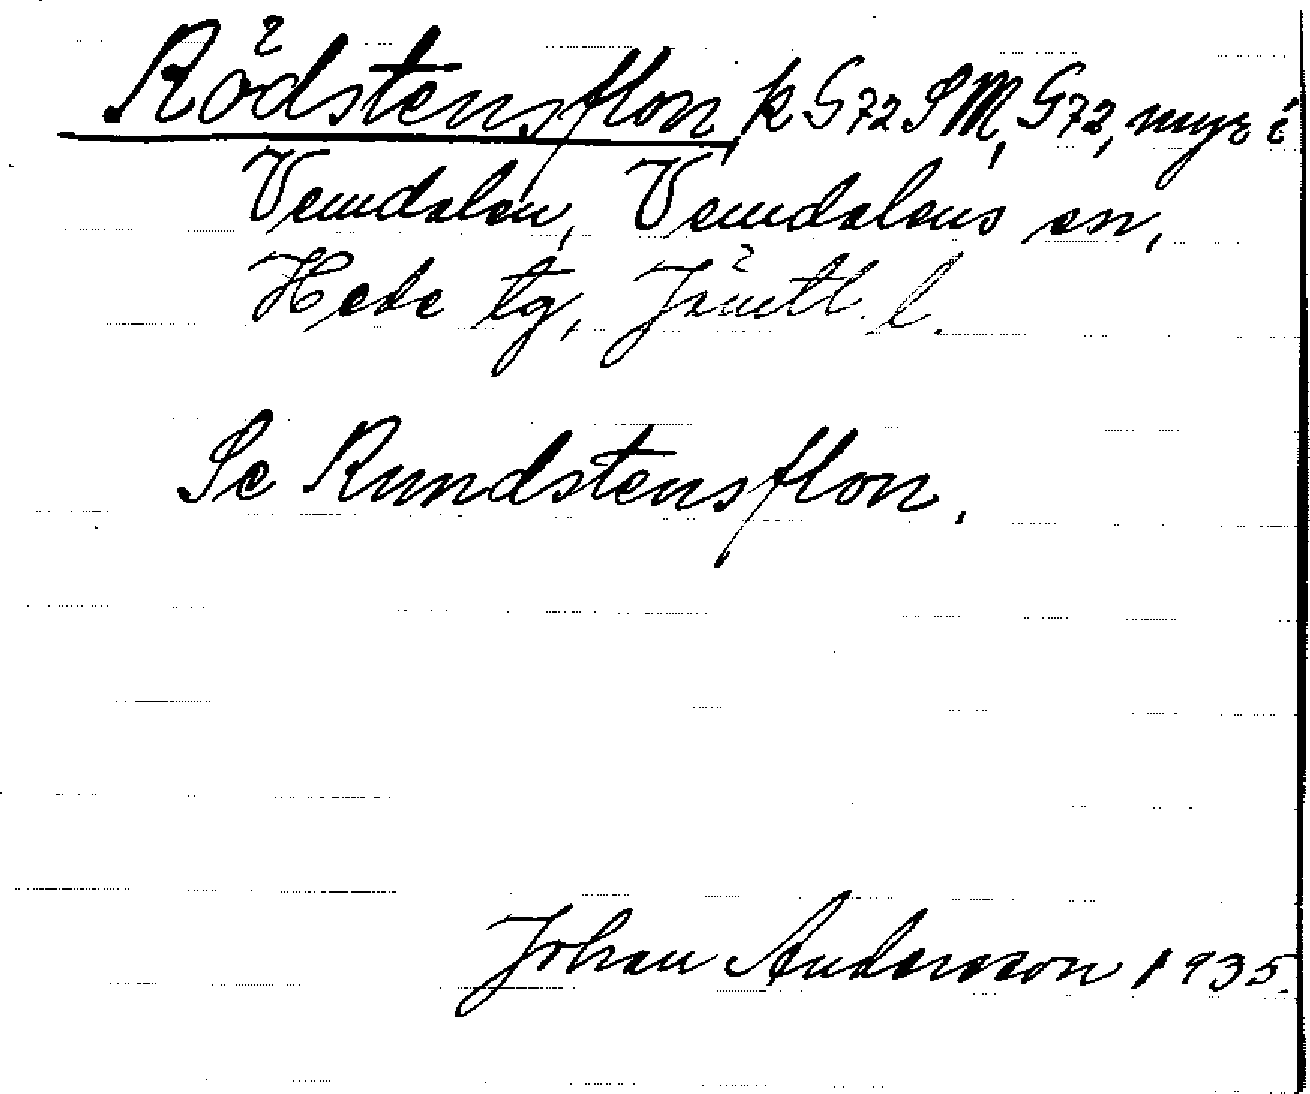 Rödstensflon k G72 SM, G72, myr i
Vemdalen, Vemdalens sn,
Hede tg, Jämtl. l.
Se Rundstensflon.
Johan Andersson 1935.